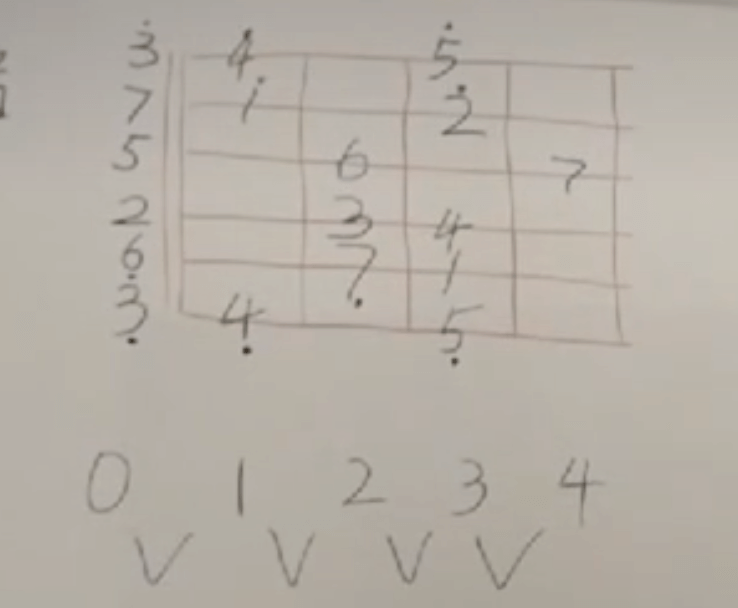 3 4 5
7 1 2
5 6 7
2 3 4
6 7 1
3 4 5
0 1 2 3 4
V V V V